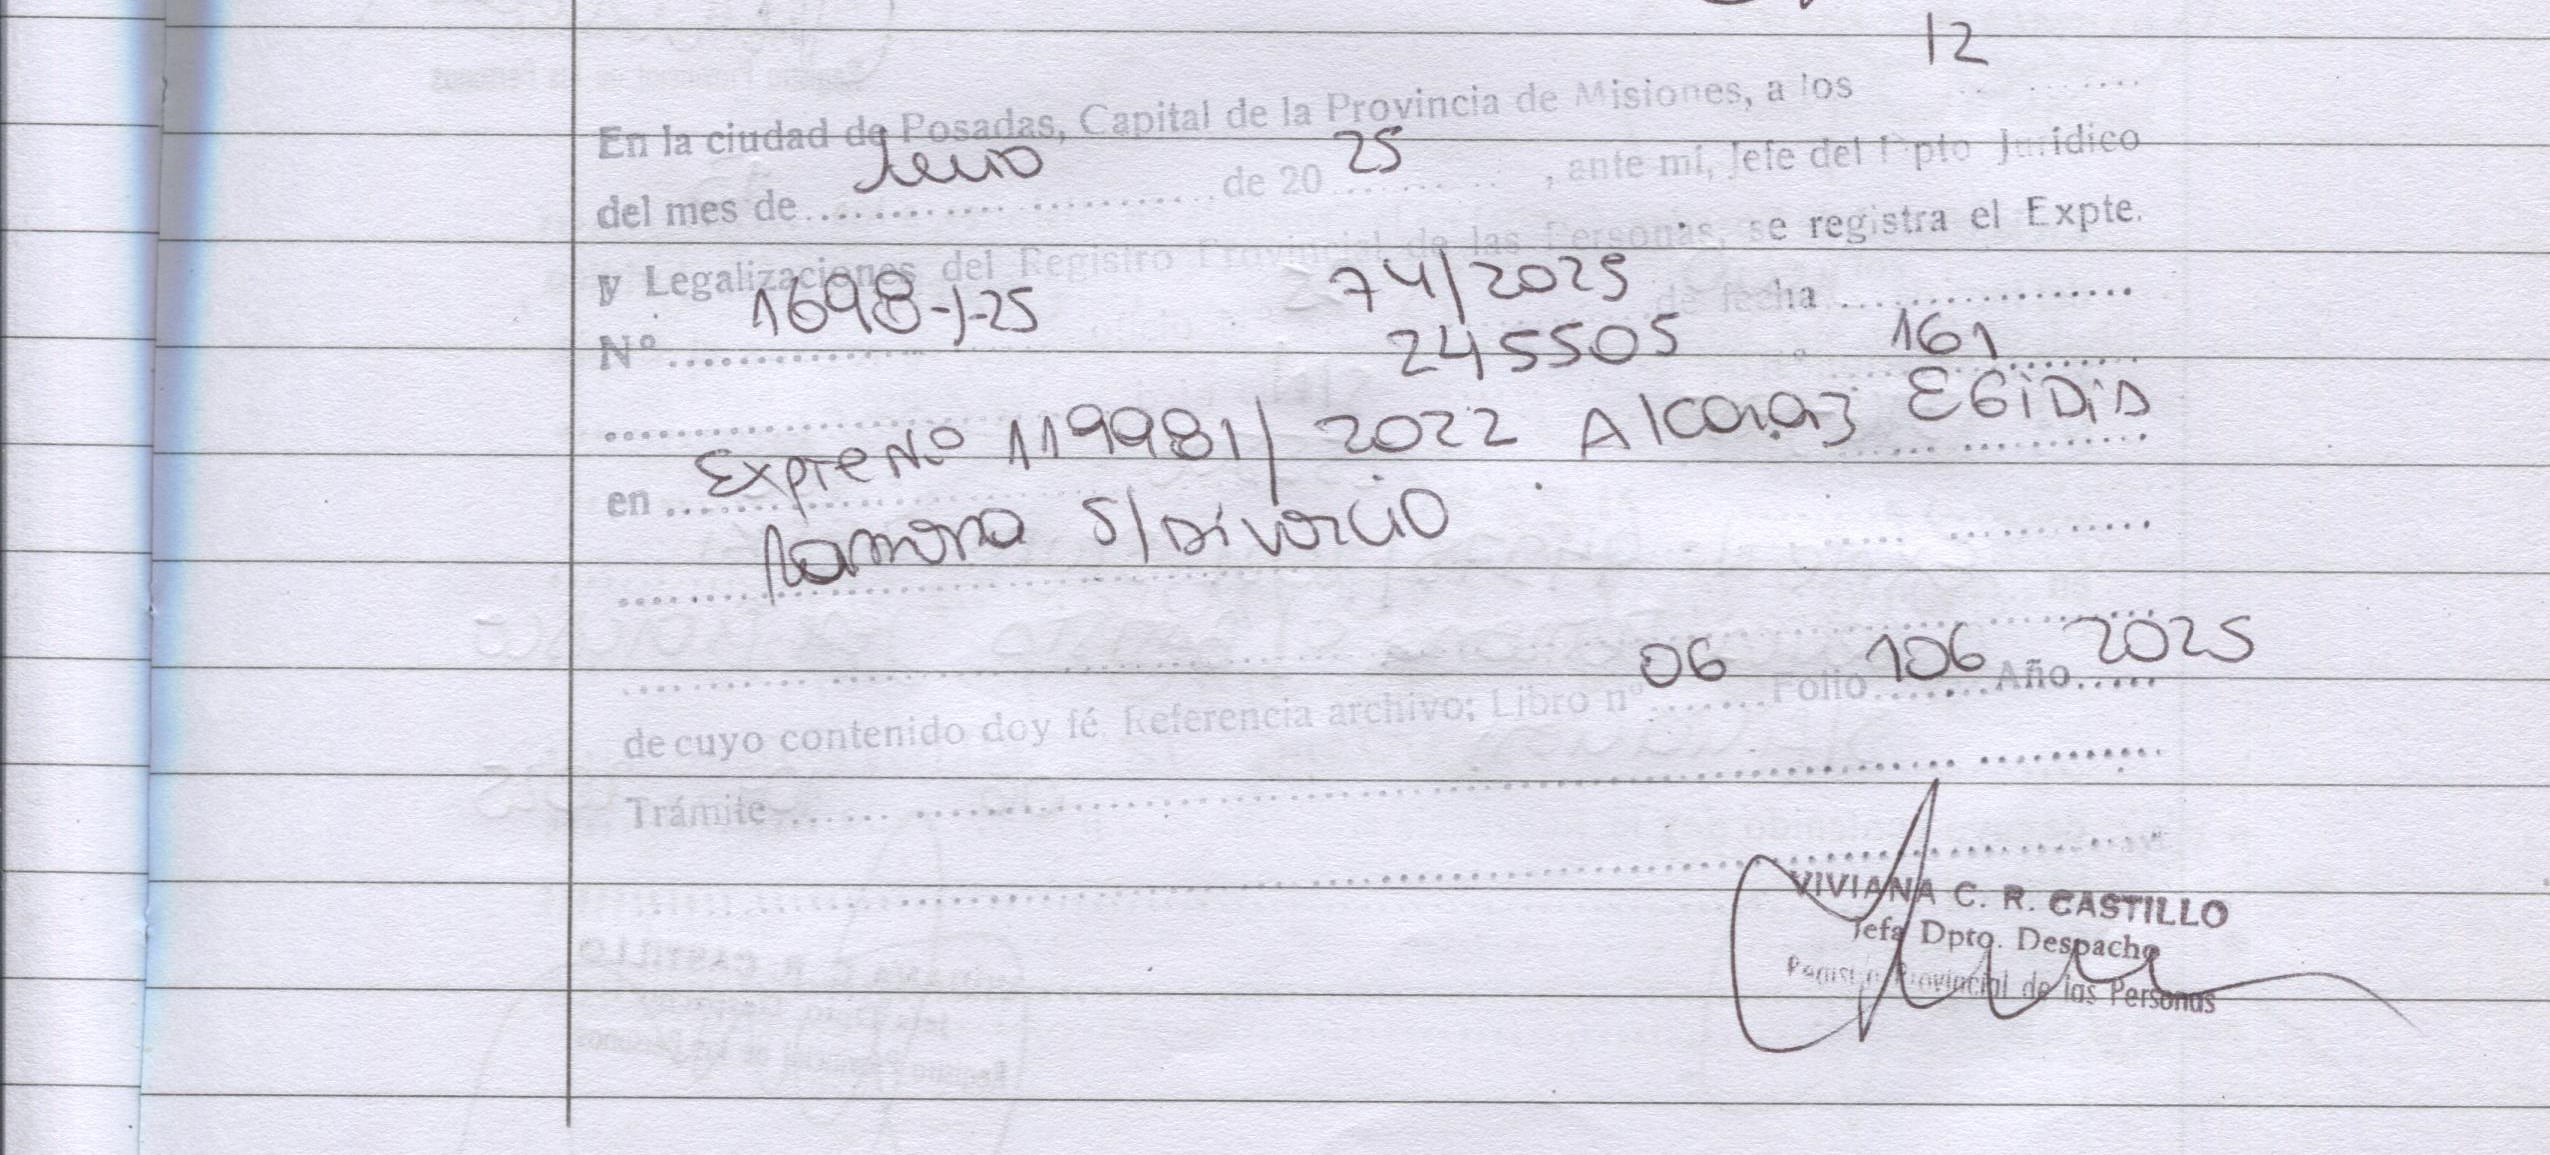 12
En la ciudad de Posadas, Capital de la Provincia de Misiones, a los
del mes de de 20 25, ante mí, Jefe del Dpto Jurídico
y Legalizaciones del Registro Provincial de las Personas, se registra el Expte.
Nº 1698-J-25 74/2025 de fecha
245505 161
en Expte Nº 119981/2022 Alcaraz EGiDiD
Ramona S/Divorcio
de cuyo contenido doy fé. Referencia archivo; Libro nº 06 Folio 106 Año 2025
Trámite
VIVIANA C. R. CASTILLO
Jefa Dpto. Despacho
Registro Provincial de las Personas